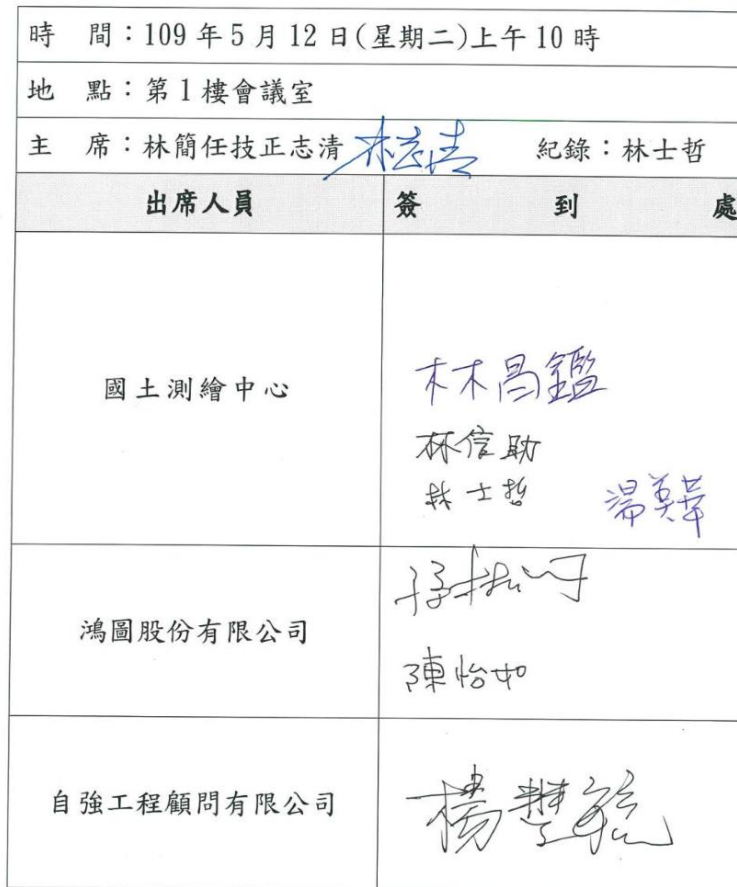 時　間：109 年 5 月 12 日(星期二)上午 10 時
地　點：第 1 樓會議室
主　席：林簡任技正志清 林志清 紀錄：林士哲
出席人員 簽到處
國土測繪中心
林昌鑑
林信助
林士哲
鴻圖股份有限公司
陳怡如
自強工程顧問有限公司